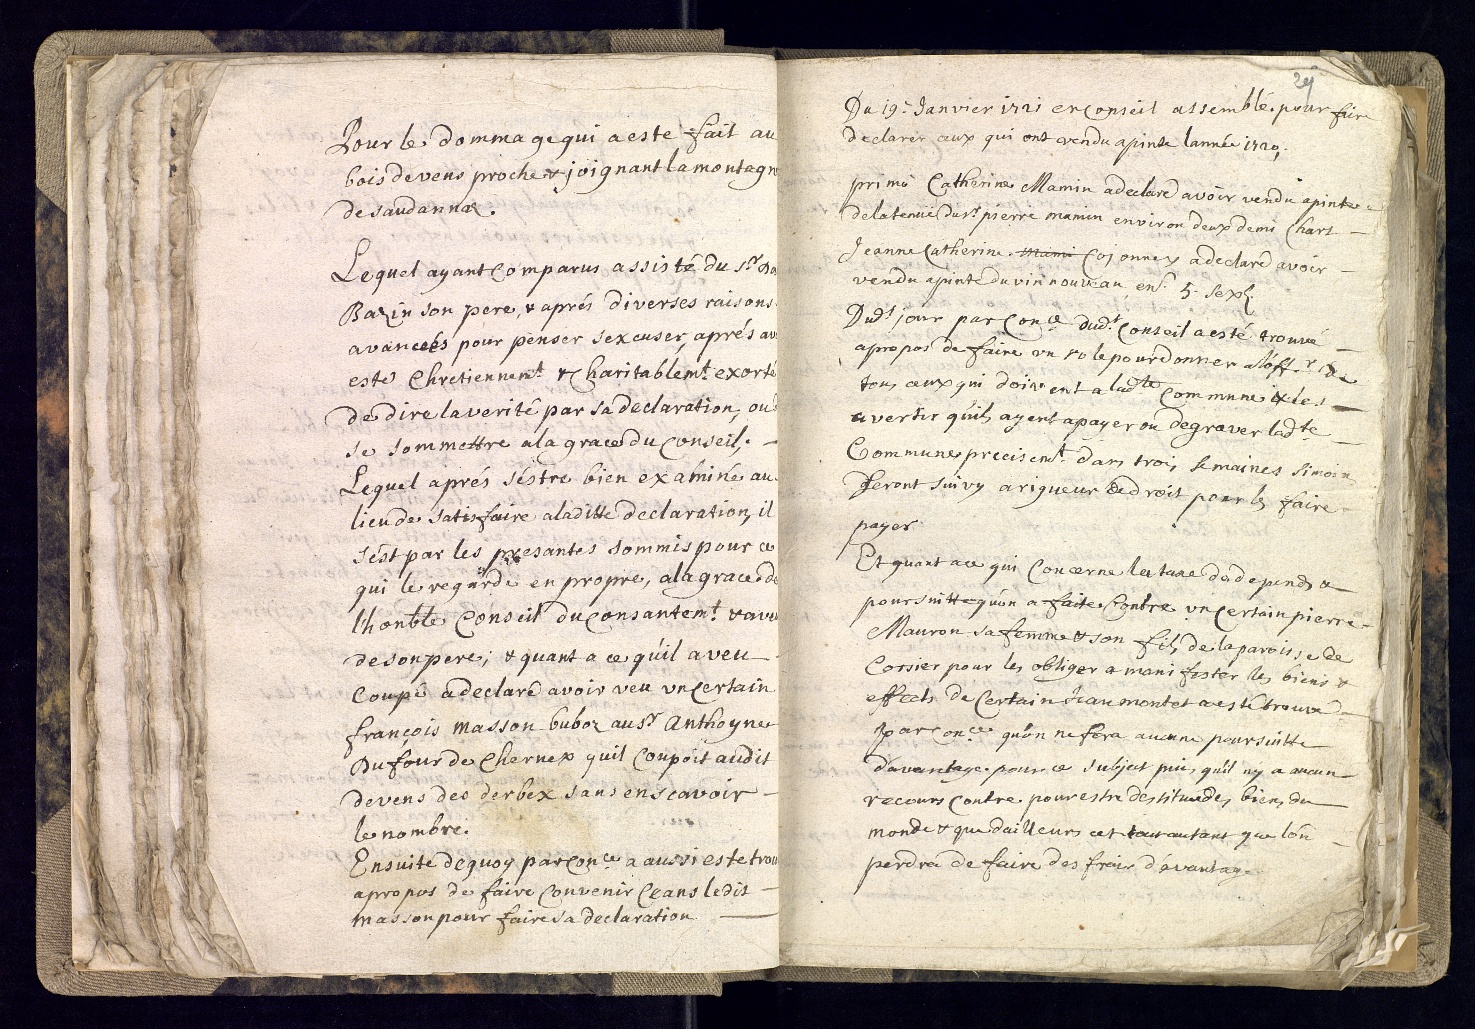 Pour le dommage qui a este fait au
bois devens proche & joignant la montagne
de saudannaz.
Lequel ayant Comparus assisté du Sr.
Bazin son pere, & aprés diverses raisons
avancees pour penser sexcuser, aprés av
esté Chretiennemt. & Charitablemt. exorté
de dire la verité par sa declaration, ou
se sommettre a la grace du Conseil. -
Lequel aprés séstre bien examiné au
lieu de satisfaire a laditte declaration, il
sést par les presantes sommis pour ce
qui le regarde en propre, a la grace de
lhonble Conseil du consantemt. & aveu
de son pere; & quant a ce quil a veu
Coupé a declaré avoir veu un Certain
françois masson buboz au Sr. Anthoyne
Dufour de Chernex quil Coupoit audit
devens des derbex sans en scavoir -
le nombre.
Ensuite dequoy par Conce a aussi esté trou
apropos de faire Convenir Ceans ledit -
masson pour faire sa declaration
29
Du 19e. Janvier 1721 en Conseil assemblé pour faire
declarer ceux qui ont vendu a pinte lannée 1720,
primo Catherine Mamin a declaré avoir vendu a pinte
de la tenue du Sr. pierre mamin environ deux demi Chars -
Jeanne Catherine Mami Cojonnex a declaré avoir -
vendu a pinte du vin nouveau en. 5. sex
Dudt. jour par Conce dudt. Conseil a esté trouvé -
apropos de faire un role pour donner a loffr. de
tous ceux qui doivent a ladte Commune & les -
avertir quils ayent a payer ou degraver ladte -
Commune precisemt. dans trois semaines sinon
seront suivy a rigueur de droit pour les faire
payer
Et quant a ce qui Concerne la taxe de depends &
poursuitte quón a faite Contre un Certain pierre
Mauron sa femme & son fils de la paroisse de
Corsier pour les obliger a manifester les biens &
effects de Certain Jean montet a esté trouvé
par Conce quón ne fera aucune poursuitte
davantage pour ce subject puis quil ny a aucun
recours Contre pour estre destituéz de biens du
monde & que dailleurs cet tout autant que lón
perdra de faire des frais davantage